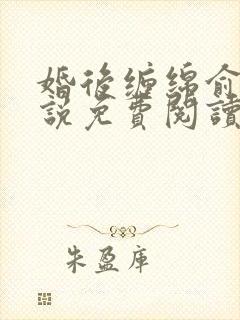 婚後纏綿俞
說免費閱讀
朱盈庫